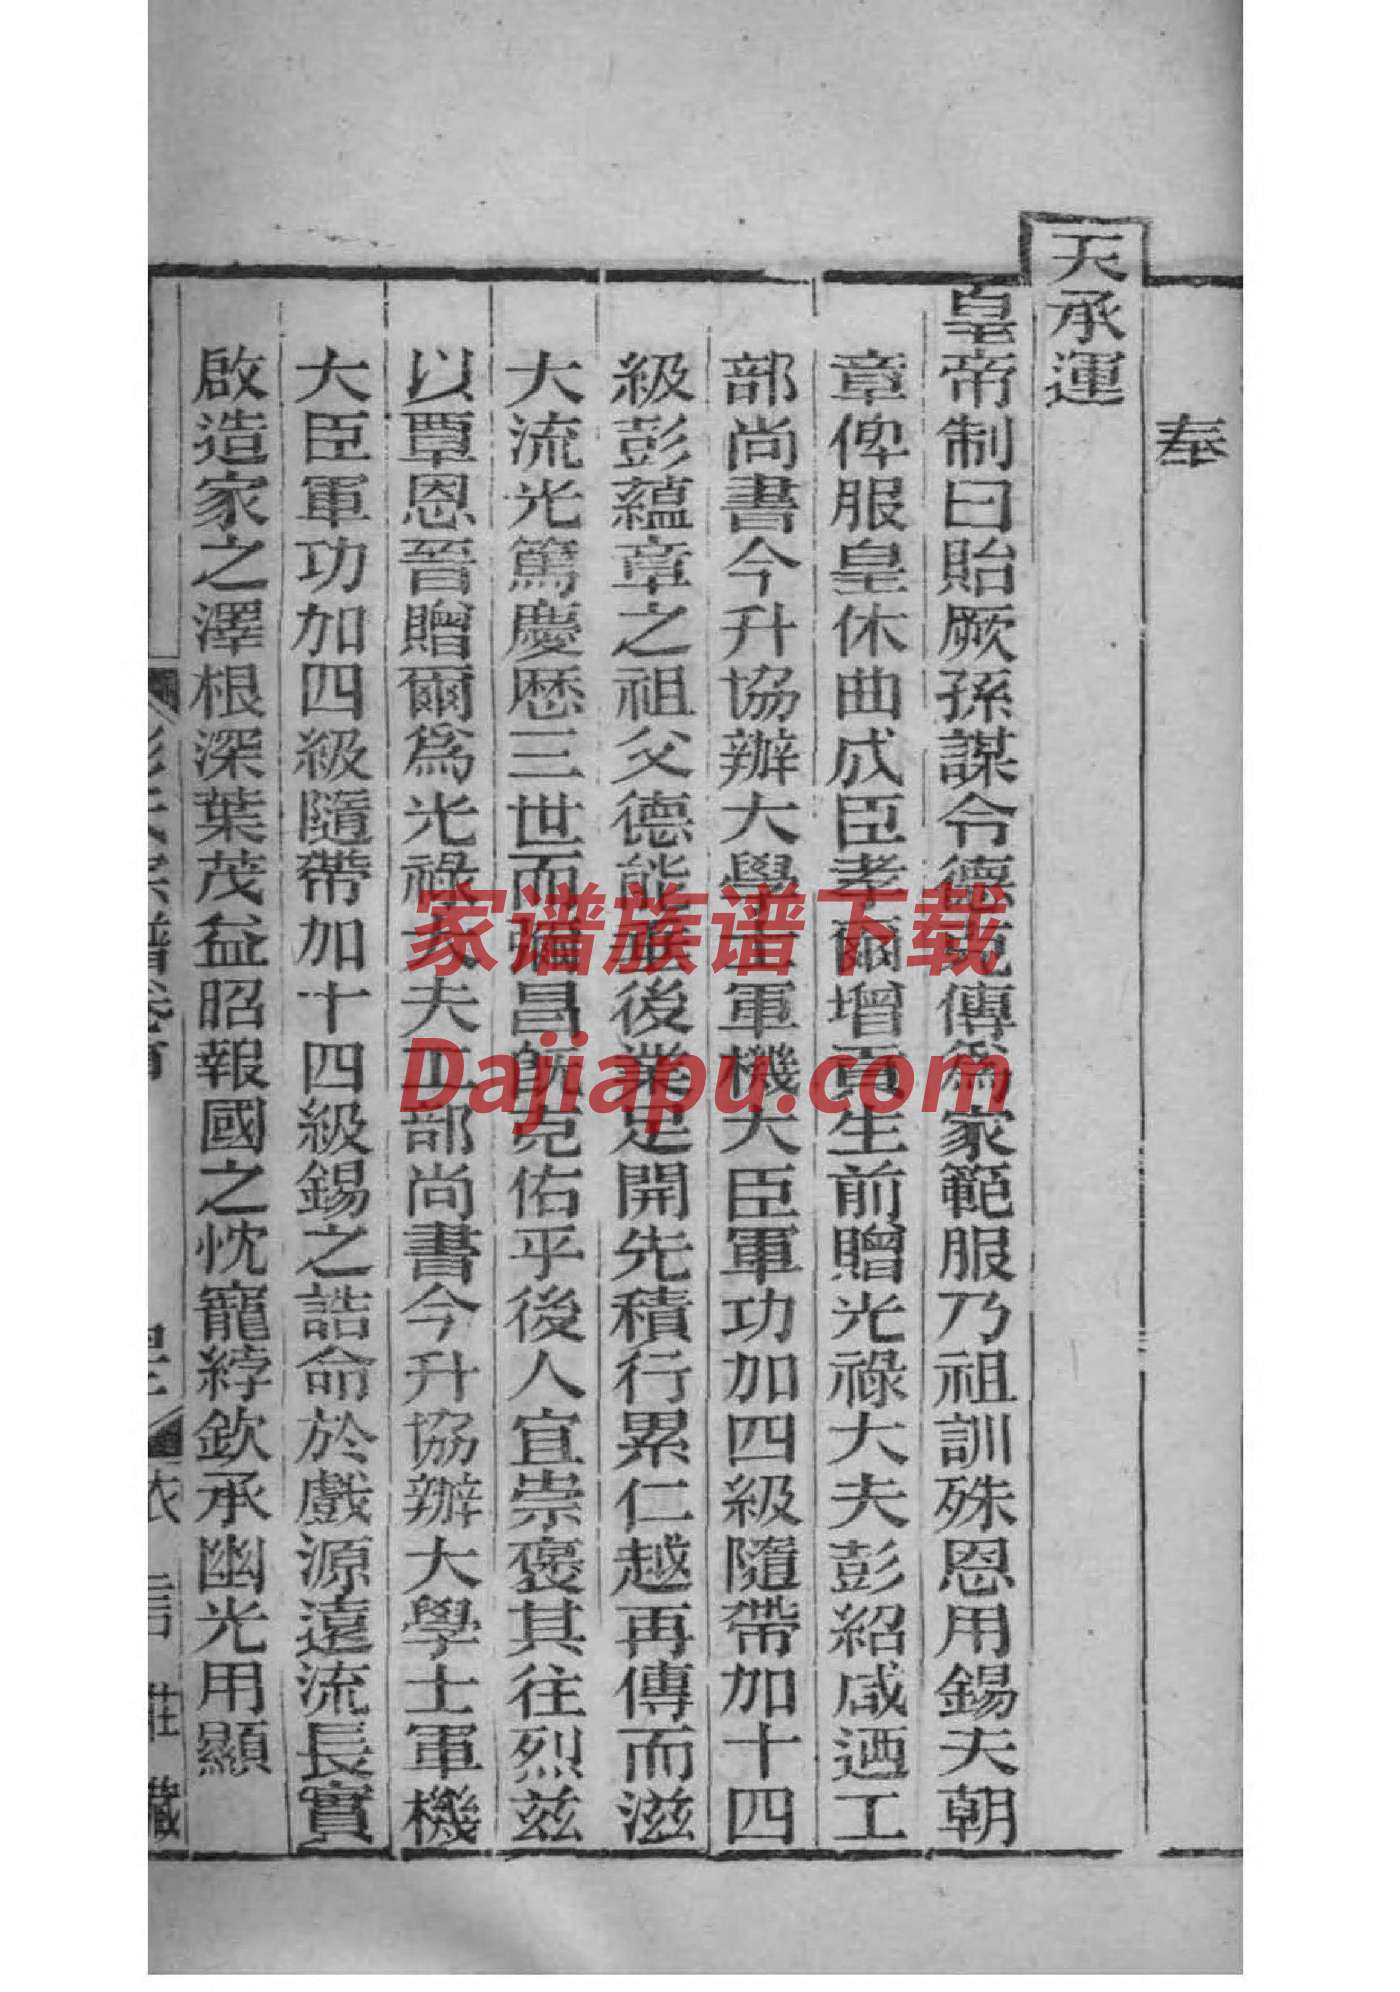 奉
天承運
皇帝制曰貽厥孫謀令德克傳爲家範服乃祖訓殊恩用錫夫朝
章俾服皇休曲成臣孝爾增貢生前贈光祿大夫彭紹咸迺工
部尚書今升協辦大學士軍機大臣軍功加四級隨帶加十四
級彭蘊章之祖父德能垂後業足開先積行累仁越再傳而滋
大流光篤慶歷三世而彌昌旣克佑乎後人宜崇褒其往烈茲
以覃恩晉贈爾爲光祿大夫工部尚書今升協辦大學士軍機
大臣軍功加四級隨帶加十四級錫之誥命於戲源遠流長實
啟造家之澤根深葉茂益昭報國之忱寵綍欽承幽光用顯
彭氏宗譜卷首
衣言莊藏
家谱族谱下载
Dajiapu.com